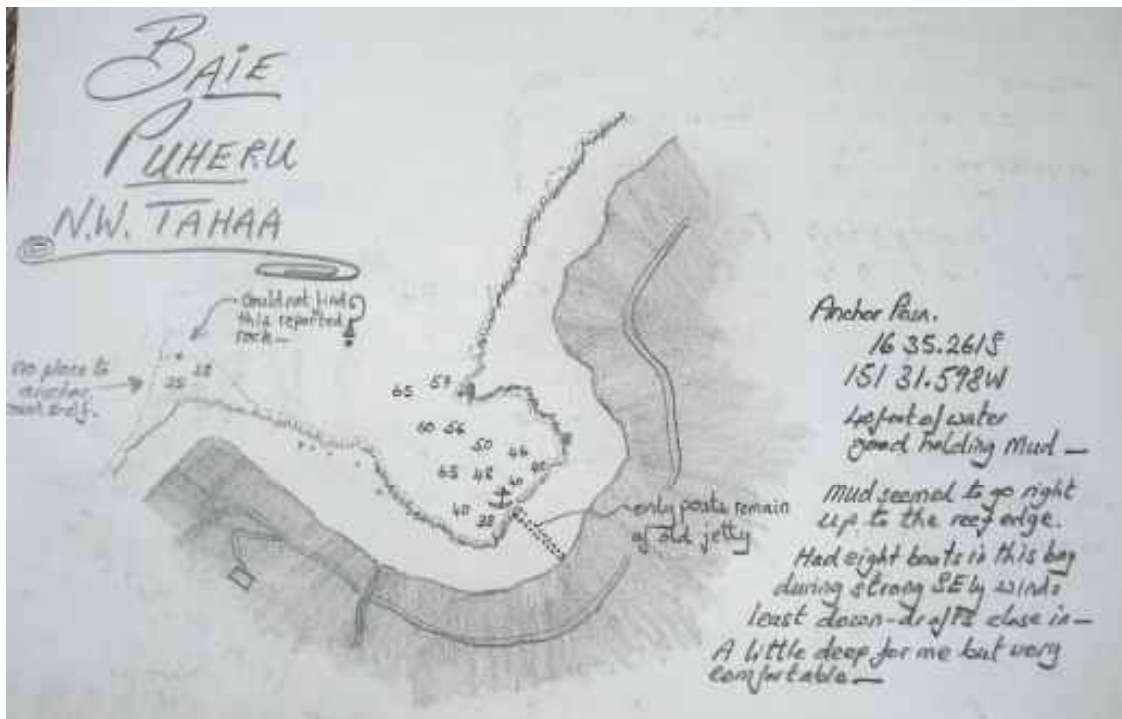 BAIE
PUHERU
N.W. TAHAA
Could not find
this reported
rock —
?
no place to
anchor
25 28
65 57
60 56
50
46
65 48 40
40
40 38
only posts remain
of old jetty
Anchor Posn.
16 35.261S
151 31.598W
40 feet of water
good holding Mud —
Mud seemed to go right
up to the reef edge.
Had eight boats in this bay
during strong SE'ly winds
least down-drafts close in —
A little deep for me but very
comfortable —